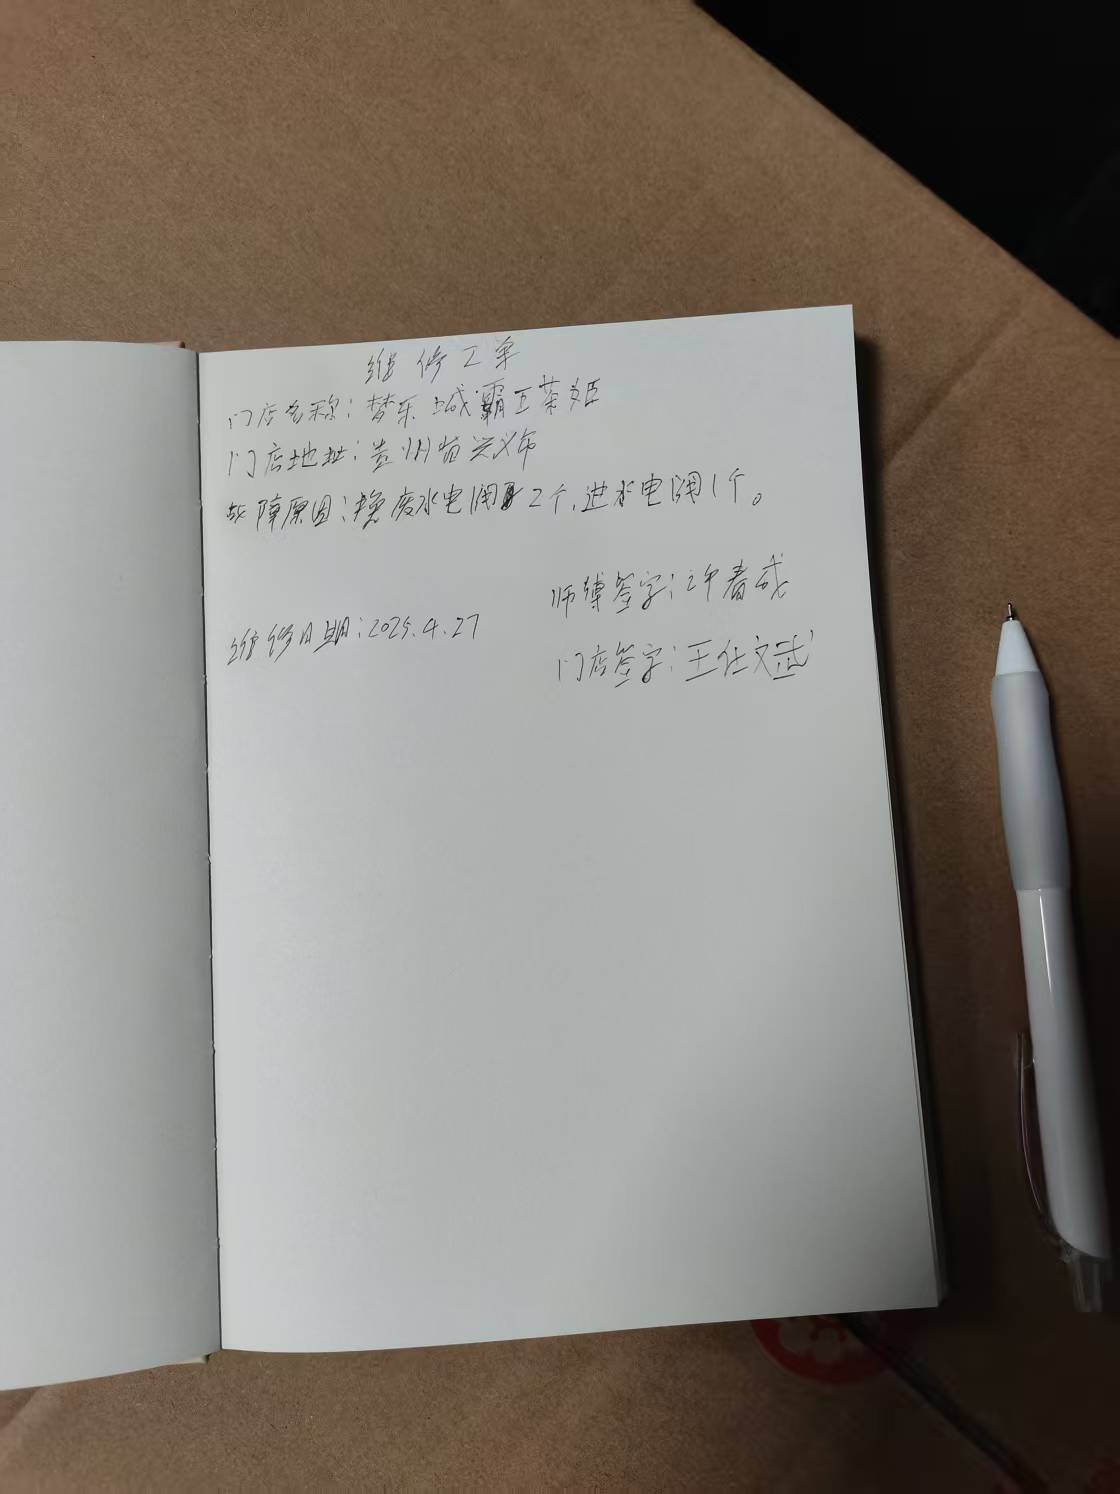 维修工单
门店名称:梦乐城霸王茶姬
门店地址:贵州省兴义市
故障原因:换废水电阀2个,进水电阀1个。
师傅签字:许春成
维修日期:2025.4.27
门店签字:王仕文武